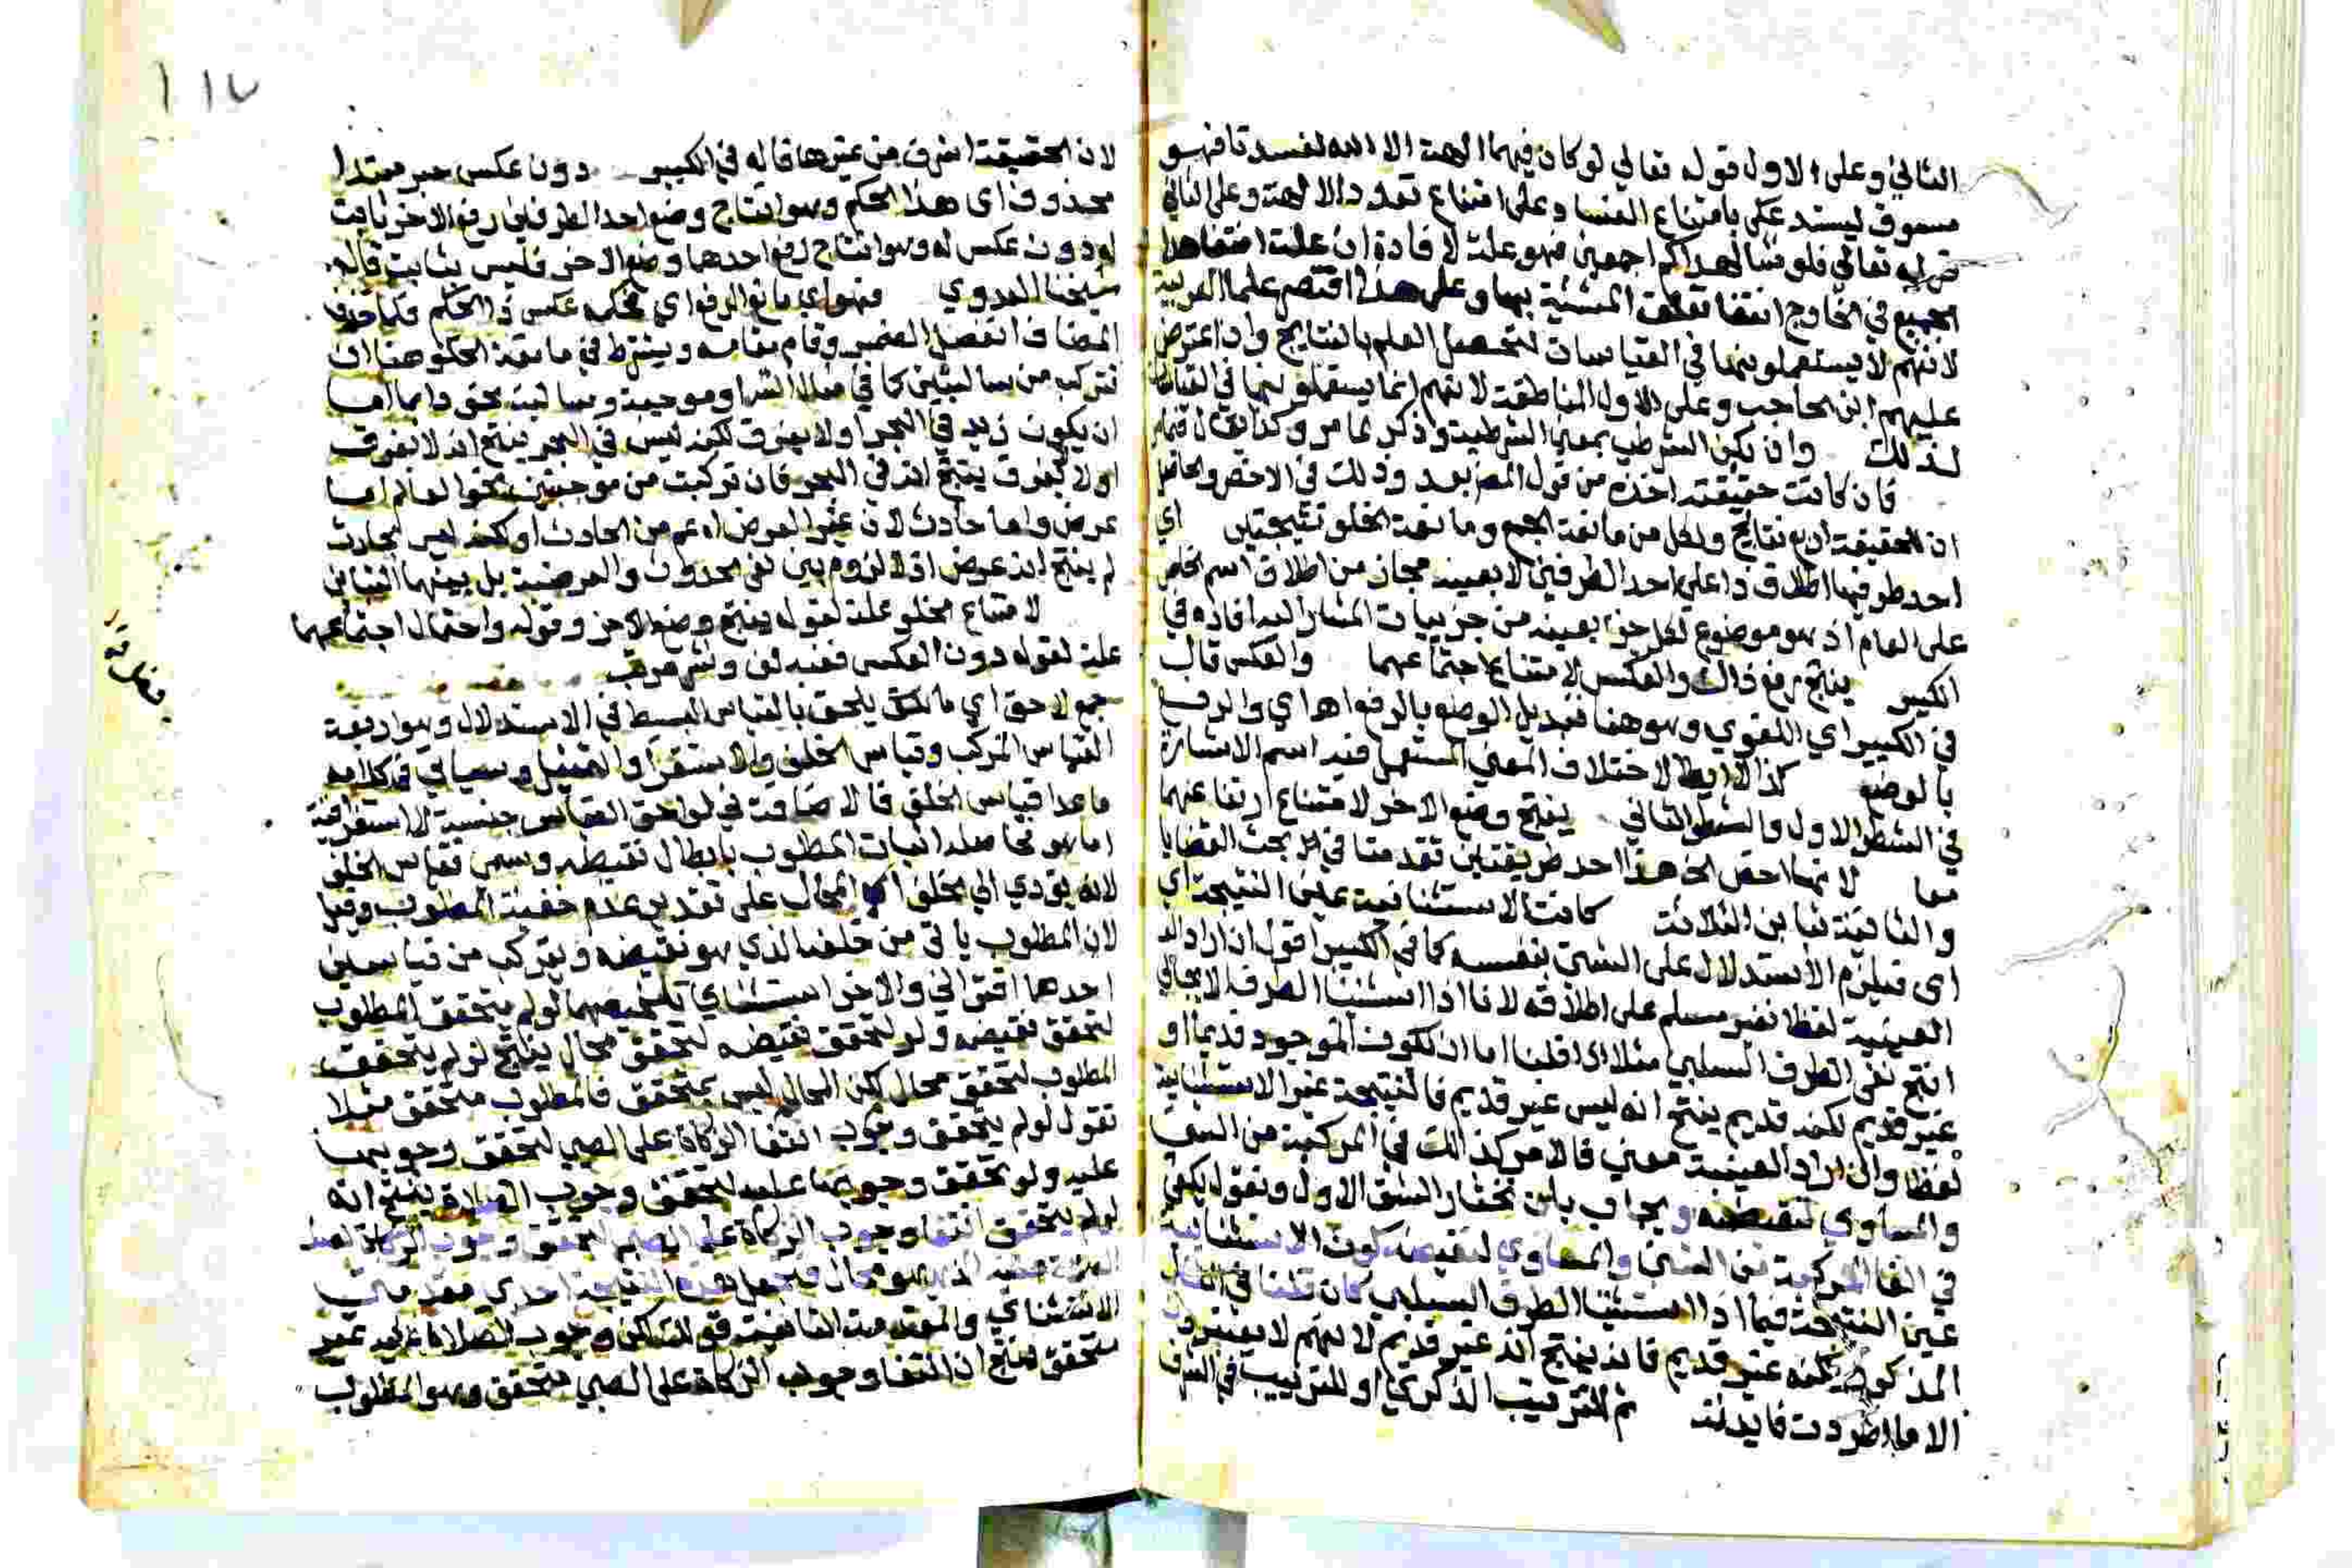 الثاني وعلى الاول قوله تعالي لو كان فيهما الهة الا الله لفسدتا فهو
مسوق ليستدعلى بامتناع الفساد على امتناع تعدد الالهة وعلى الثاني
قوله تعالي فلو شا لهداكم اجمعين فهو علة لافادة ان علة انتفا هدا
الجميع في الخارج انتفا تعلق المشيئة بها وعلى هذا اقتصر علما العربية
لانهم لا يستعملونها في القياسات لتحصيل العلم بالنتايج وان اعترض
عليهم ابن الحاجب وعلى الاول المناطقة لانهم انما يستعملونها في القياسات
لذلك وان يكن الشرطي بمعني الشرطية وذكر لما مر وكذا يقال
فان كانت حقيقته اخذه من قول المص بعد وذلك في الاخص والحاصل
ان للحقيقة اربع نتايج ولكل من مانعة الجمع ومانعة الخلو نتيجتين اي
احد طرفيها اطلاق ذا على احد الطرفين لا بعينه مجاز من اطلاق اسم الخاص
على العام اذ هو موضوع لكل جز بعينه من جزييات المشار اليه افاده في
الكبير ينتج رفع ذاك والعكس لامتناع اجتماعهما والعكس قال
في الكبير اي اللغوي وهو هنا تبديل الوضع بالرفع اه اي والرفع
بالوضع كذا لا ايطا لاختلاف المعني المستعمل فيه اسم الاشارة
في الشطر الاول والشطر الثاني ينتج وضع الاخر لامتناع ارتفاعهما
معا لانها اخص الخ هذا احد طريقتين تقدمتا في بحث القضايا
والثانية تباين الثلاثة كانت الاستثنائية عين النتيجة اي
اي فيلزم الاستدلال على الشي بنفسه كما في الكبير اقول ان اراد
العينية لفظا فغير مسلم على اطلاقه لانا اذا استثنينا الطرف الايجابي
انتج نفي الطرف السلبي مثلا اذا قلنا اما ان يكون الموجود قديما او
غير قديم لكنه قديم ينتج انه ليس غير قديم فالنتيجة غير الاستثنائية
لفظا وان اراد العينية معني فالامر كذلك في المركبة من الشي
والمساوي لنقيضه ويجاب بان نختار الشق الاول ونقول يكفي
في الغا المركبة من الشي والمساوي لنقيضه كون الاستثنائية
عين النتيجة فيما اذا استثنينا الطرف السلبي كان قلنا في المثال
المذكور لكنه غير قديم فانه ينتج انه غير قديم لانهم لا يعتبرون
الا ما اطردت فايدته ثم للترتيب الذكري او للترتيب في الشرف
١١٧
لان الحقيقة اشرف من غيرها قاله في الكبير دون عكس خبر مبتدا
محذوف اي هذا الحكم وهو انتاج وضع احد الطرفين رفع الاخر ثابت
له دون عكس له وهو انتاج رفع احدهما وضع الاخر فليس بثابت قاله
شيخنا العدوي فهو اي مانع الرفع اي حكمه عكس ذا الحكم فلما حذف
المضاف انفصل الضمير وقام مقامه ويشترط في مانعة الخلو هنا ان
تتركب من سالبتين كما في مثال الشرا وموجبة وسالبة نحو دايما اما
ان يكون زيد في البحر او لا يغرق لكنه ليس في البحر ينتج انه لا يغرق
او لا يغرق ينتج انه في البحر فان تركبت من موجبتين نحو العالم اما
عرض واما حادث لان غير العرض اعم من الحادث او لكنه ليس بحادث
لم ينتج انه عرض اذ لا لزوم بين نفي الحدوث والعرضية بل بينهما التنافي
لامتناع الخلو علة لقوله ينتج وضع الاخر وقوله واحتمال اجتماعهما
علة لقوله دون العكس ففيه لف ونشر مرتب
جمع لاحق اي ما يلحق بالقياس البسيط في الاستدلال وهو اربعة
القياس المركب وقياس الخلف والاستقرا والتمثيل وسياتي في كلامه
ما عدا قياس الخلف فالاضافة في لواحق القياس جنسية لا استغراقية
اما هو فحاصله اثبات المطلوب بابطال نقيضه وسمي قياس الخلف
لانه يودي الي الخلف اي المحال على تقدير عدم حقية المطلوب وقيل
لان المطلوب ياتي من خلفه الذي هو نقيضه ويتركب من قياسين
احدهما اقتراني والاخر استثنائي تلخيصهما لو لم يتحقق المطلوب
لتحقق نقيضه ولو تحقق نقيضه لتحقق محال ينتج لو لم يتحقق
المطلوب لتحقق محال لكن المحال ليس بمتحقق فالمطلوب متحقق مثلا
نقول لو لم يتحقق وجوب انتفا الزكاة على الصبي لتحقق وجوبها
عليه ولو تحقق وجوبها عليه لتحقق وجوب الصلاة ينتج انه
لو لم يتحقق انتفا وجوب الزكاة على الصبي لتحقق وجوب
هو محال فتجعل هذه النتيجة احدي مقدمتي
الاستثنائي والمقدمة الثانية قولنا لكن وجوب الصلاة عليه غير
متحقق ينتج ان انتفا وجوب الزكاة على الصبي متحقق وهو المطلوب